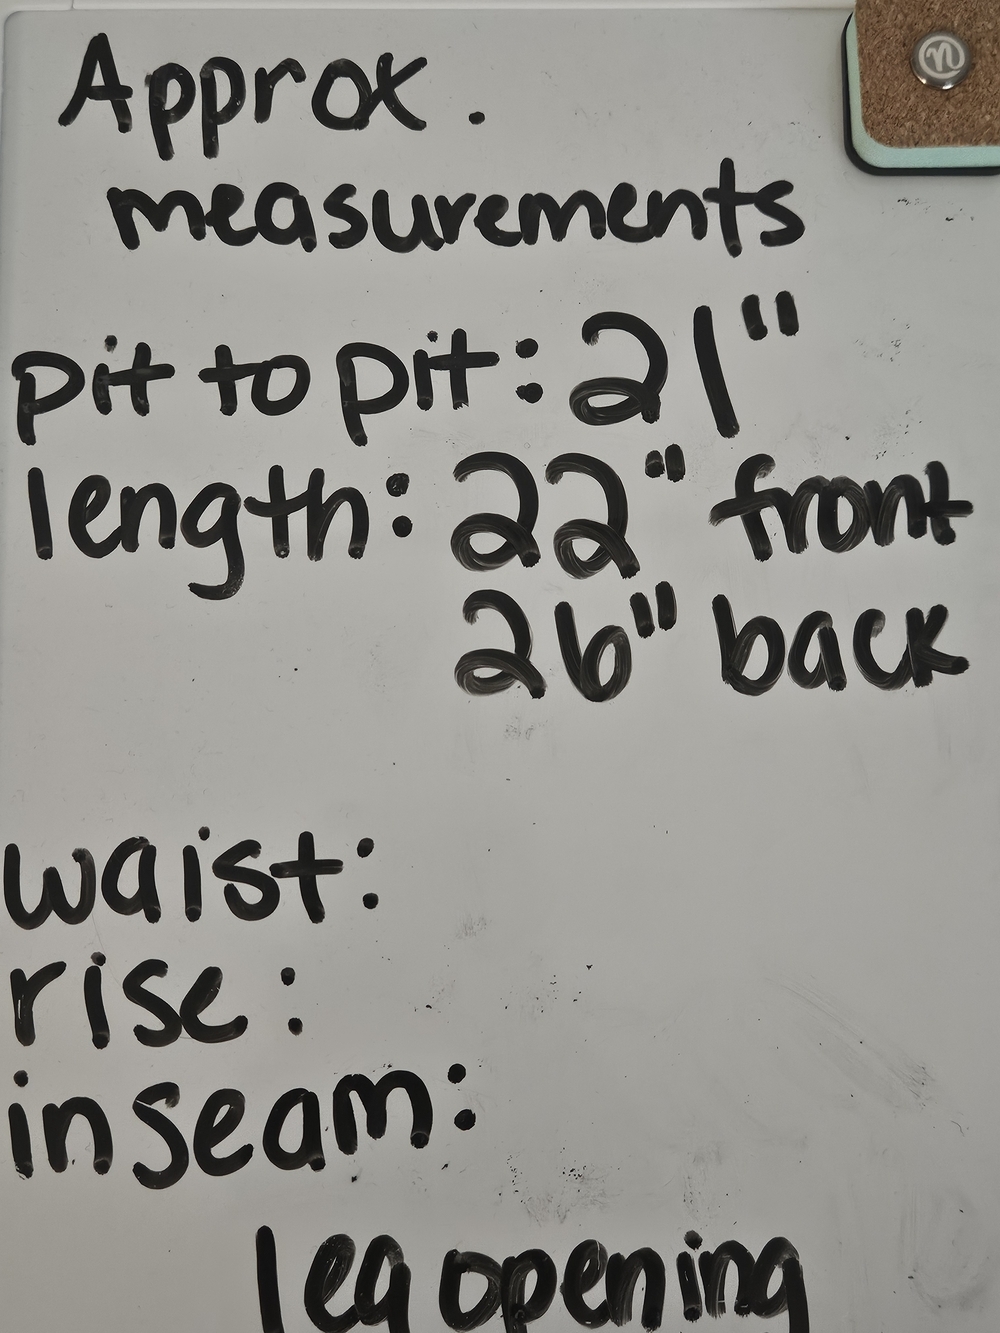 Approx.
measurements
pit to pit: 21"
length: 22" front
26" back
waist:
rise:
inseam:
leg opening